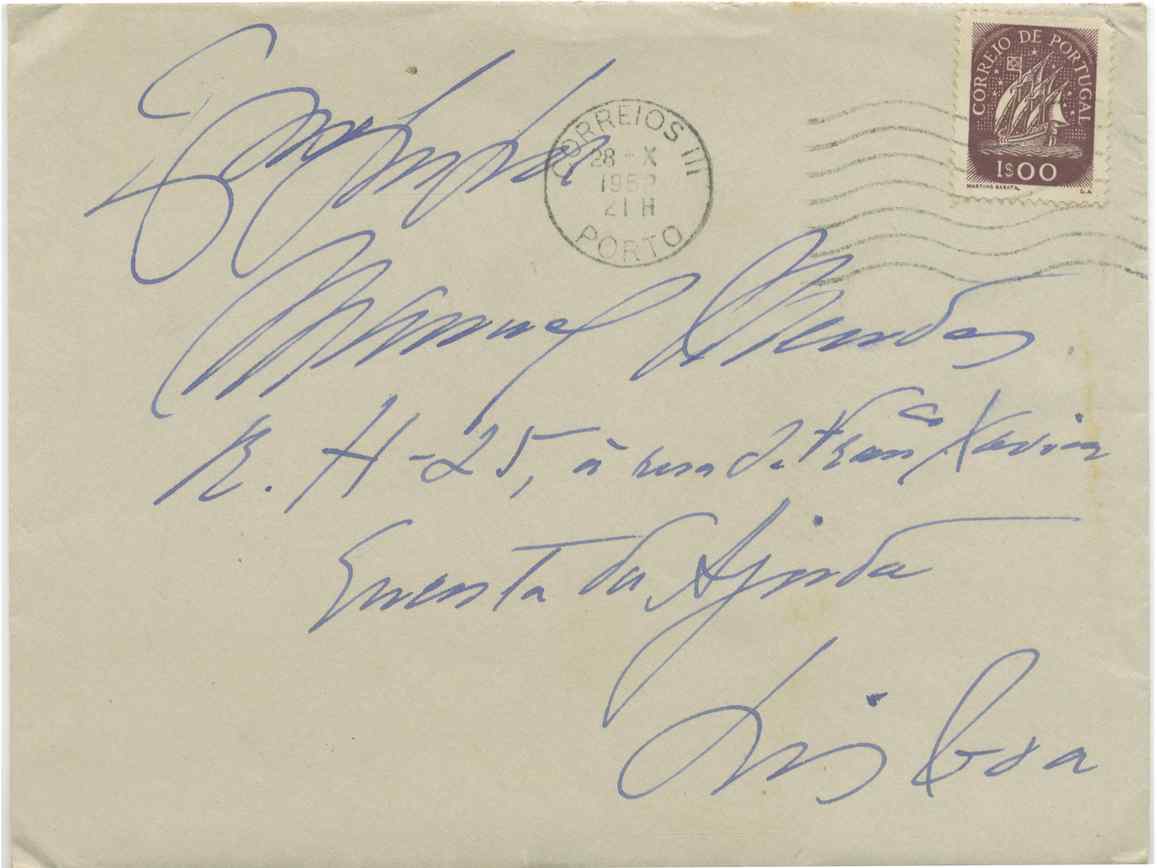 CORREIO DE PORTUGAL
1$00
MARTINS BARATA
CORREIOS III
28-X
1952
21 H
PORTO
Manuel Mendes
R. H-25, à rua de Franco Xavier
da Ajuda
Lisboa